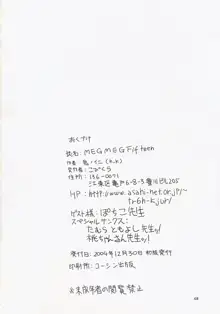 おくづけ
誌名: MEGMEGFifteen
発行者: こびくら
住所: 136-0071
江東区亀戸6-8-3豊川ビル205
HP: http://www.asahi-net.or.jp/~
tr6h-kjur/
ゲスト様: ぽちこ先生
スペシャルサンクス:
たむらともよし先生ッ!
桃ちゃんさん先生ッ!
発行日: 2004年12月30日 初版発行
印刷所: コーシン出版
※未成年者の閲覧禁止